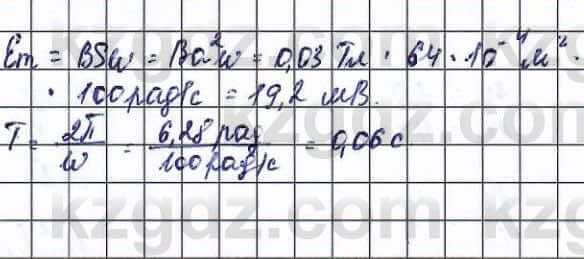 Em = BSω = Ba²ω = 0,03 Тл · 64 · 10⁻⁴ м² ·
· 100 рад/с = 19,2 мВ.
T = 2π/ω = 6,28 рад/100 рад/с = 0,06 с.
kzgdz.com
kzgdz.com